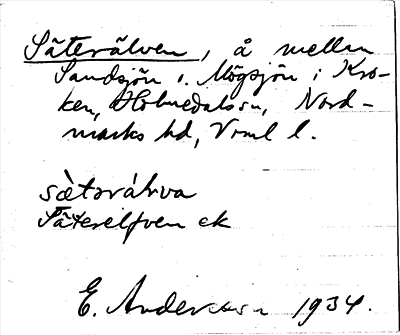 Säterälven, å mellan
Sandsjön o. Mögsjön i Kro-
ken, Holmedals sn, Nord-
marks hd, Vrml l.
sæ̀tərǽlva
Säterelfven ek
E. Andersson 1934.